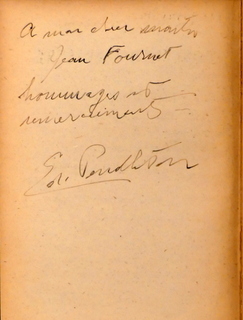 A mon cher maître
Jean Fournet
hommages et
remerciements
Ed. Pendleton